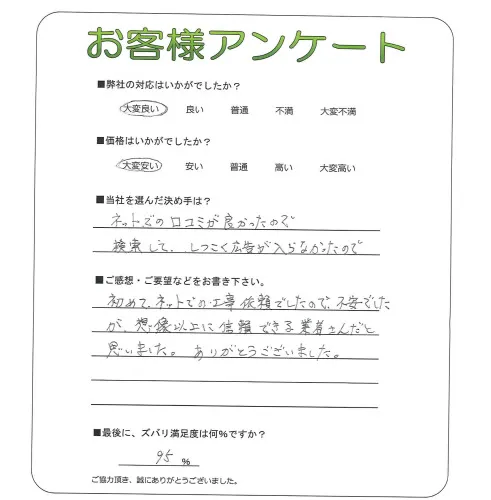 お客様アンケート
■弊社の対応はいかがでしたか？
大変良い 良い 普通 不満 大変不満
■価格はいかがでしたか？
大変安い 安い 普通 高い 大変高い
■当社を選んだ決め手は？
ネットでの口コミが良かったので
検索して、しつこく広告が入らなかったので
■ご感想・ご要望などをお書き下さい。
初めて、ネットでの工事依頼でしたので、不安でした
が、想像以上に信頼できる業者さんだと
思いました。ありがとうございました。
■最後に、ズバリ満足度は何%ですか？
95 %
ご協力頂き、誠にありがとうございました。